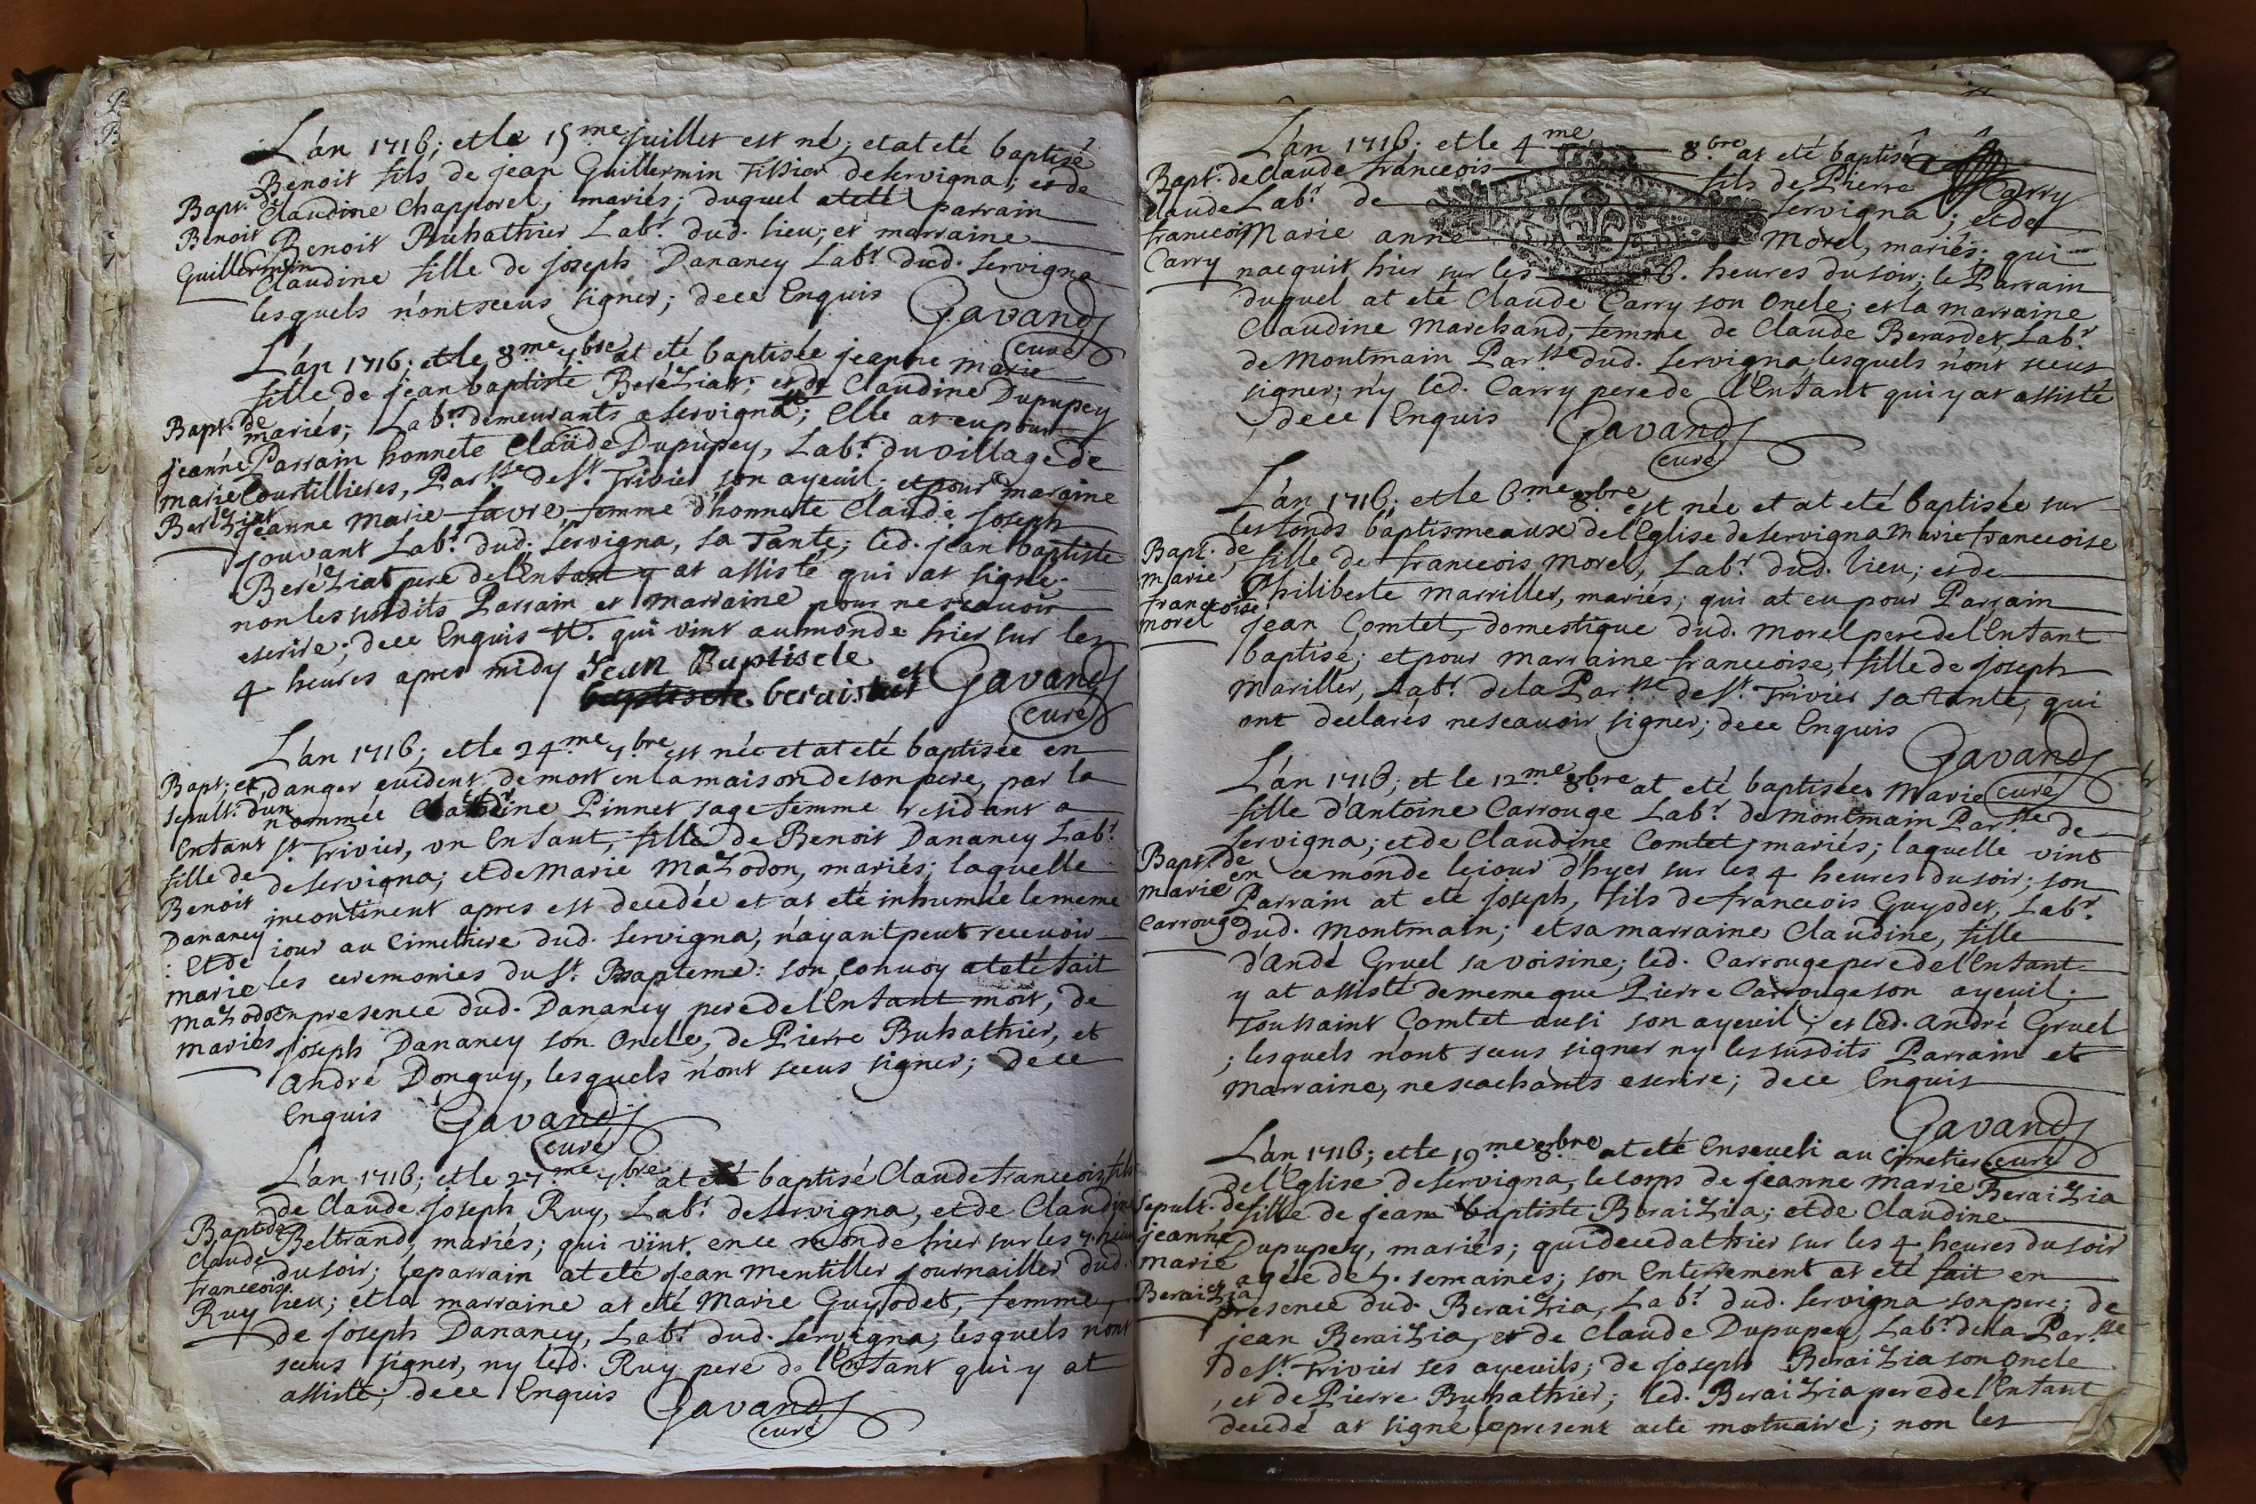 L'an 1716; et le 15me juillet est né; et at eté baptisé
Benoit fils de jean Guillermin Tissier de Servigna; et de
Claudine Chapporel; mariés; duquel at eté parrain
Benoit Buhathier Labr. dud. lieu; et marraine
Claudine fille de joseph Dananey Labr dud. Servigna
lesquels n'ont sceus signer; de ce Enquis
Gavand
curé
Bapt. de
Benoit
Guillermin
L'an 1716; et le 8me 7bre at eté baptisée jeanne marie
fille de jean baptiste Beréziat; et de Claudine Dupupey
mariés; Labrs demeurants a Servigna; Elle at eu pour
Parrain honnete Claude Dupupey, Labr. du village de
Courtillieres, Parsse de St. Trivier son ayeuil; et pour maraine
jeanne Marie favre femme d'honnete Claude joseph
jouvant Labr. dud. Servigna, sa Tante; led. jean baptiste
Beréziat pere de l'Enfant y at assisté qui at signé
non les susdits Parrain et marraine pour ne scavoir
escrire; de ce Enquis . qui vint au monde hier sur les
4 heures apres midy Jean Baptiste
Gavand
curé
Bapt. de
jeanne
marie
Beréziat
L'an 1716; et le 24me 7bre est née et at eté baptisée en
danger evident de mort en la maison de son pere, par la
nommée Pinnet sage femme residant a
St. Trivier, un Enfant, fille de Benoit Dananey Labr.
de Servigna; et de Marie Mazodon, mariés; laquelle
incontinent apres est decedée et at eté inhumée le meme
iour au Cimethiere dud. Servigna, n'ayant peut recevoir
les ceremonies du St. Bapteme: son Convoy at eté fait
en presence dud. Dananey pere de l'Enfant mort, de
joseph Dananey son Oncle, de Pierre Buhathier, et
André Donguy, lesquels n'ont sceus signer; de ce
Enquis Gavand
curé
Bapt; et
sepult. d'un
Enfant
fille de
Benoit
Dananey
: Et de
marie
mazodon
mariés
L'an 1716; et le 27me 7bre at eté baptisé Claude francois fils
de Claude joseph Ruy, Labr. de Servigna, et de Claudine
Beltrand, mariés; qui vint en ce monde hier sur les 7 heures
du soir; le parrain at eté jean mentiller journailler dud.
lieu; et la marraine at eté Marie Guyodet, femme
de joseph Dananey, Labr. dud. Servigna; lesquels n'ont
sceus signer, ny led. Ruy pere de l'Enfant qui y at
assisté; de ce Enquis Gavand
curé
Bapt. de
Claude
francois
Ruy
L'an 1716; et le 4me 8bre at eté baptisé
Claude francois fils de Pierre Carry
Labr. de Servigna; et de
Marie anne Morel, mariés; qui
nacquit hier sur les 6. heures du soir; le Parrain
duquel at eté Claude Carry son Oncle; et la marraine
Claudine Marchand, femme de Claude Berardet, Labr
de Montmain Parsse dud. Servigna, lesquels n'ont sceus
signer; n'y led. Carry pere de l'Enfant qui y at assisté
; de ce Enquis Gavand
curé
Bapt. de
Claude
francois
Carry
L'an 1716; et le 6me 8bre est née et at eté baptisée sur
les fonds baptismeaux de l'Eglise de Servigna Marie francoise
fille de francois Morel, Labr. dud. lieu; et de
Philiberte Marriller, mariés; qui at eu pour Parrain
jean Comtet, domestique dud. morel pere de l'Enfant
baptisé; et pour marraine francoise, fille de joseph
Mariller, Labr. de la Parsse de St. Trivier sa Tante; qui
ont declarés ne scavoir signer; de ce Enquis
Gavand
curé
Bapt. de
marie
francoise
morel
L'an 1716; et le 12me 8bre at eté baptisée Marie
fille d'Antoine Carrouge Labr. de Montmain Parsse de
Servigna; et de Claudine Comtet, mariés; laquelle vint
en ce monde le iour d'hyer sur les 4 heures du soir; son
Parrain at eté joseph, fils de francois Guyodet, Labr.
dud. Montmain; et sa marraine Claudine, fille
d'Andé Gruel sa voisine; led. Carrouge pere de l'Enfant
y at assisté de meme que Pierre Carrouge son ayeuil;
Toussaint Comtet aussi son ayeuil; et led. André Gruel
; lesquels n'ont sceus signer ny les susdits Parrain et
Marraine, ne scachants escrire; de ce Enquis
Gavand
curé
Bapt. de
marie
Carrouge
L'an 1716; et le 19me 8bre at eté Enseveli au Cimetier
de l'Eglise de Servigna, le corps de jeanne Marie Beraizia
fille de jean baptiste Beraizia; et de Claudine
Dupupey, mariés; qui deceda hier sur les 4 heures du soir
agée de 5. semaines; son Enterrement at eté fait en
presence dud. Beraizia, Labr. dud. Servigna son pere; de
jean Beraizia, et de Claude Dupupey, Labr. de la Parsse
de St. Trivier ses ayeuils; de joseph Beraizia son Oncle
, et de Pierre Buhathier; led. Beraizia pere de l'Enfant
decedé at signé le present acte mortuaire; non les
Sepult. de
jeanne
marie
Beraizia